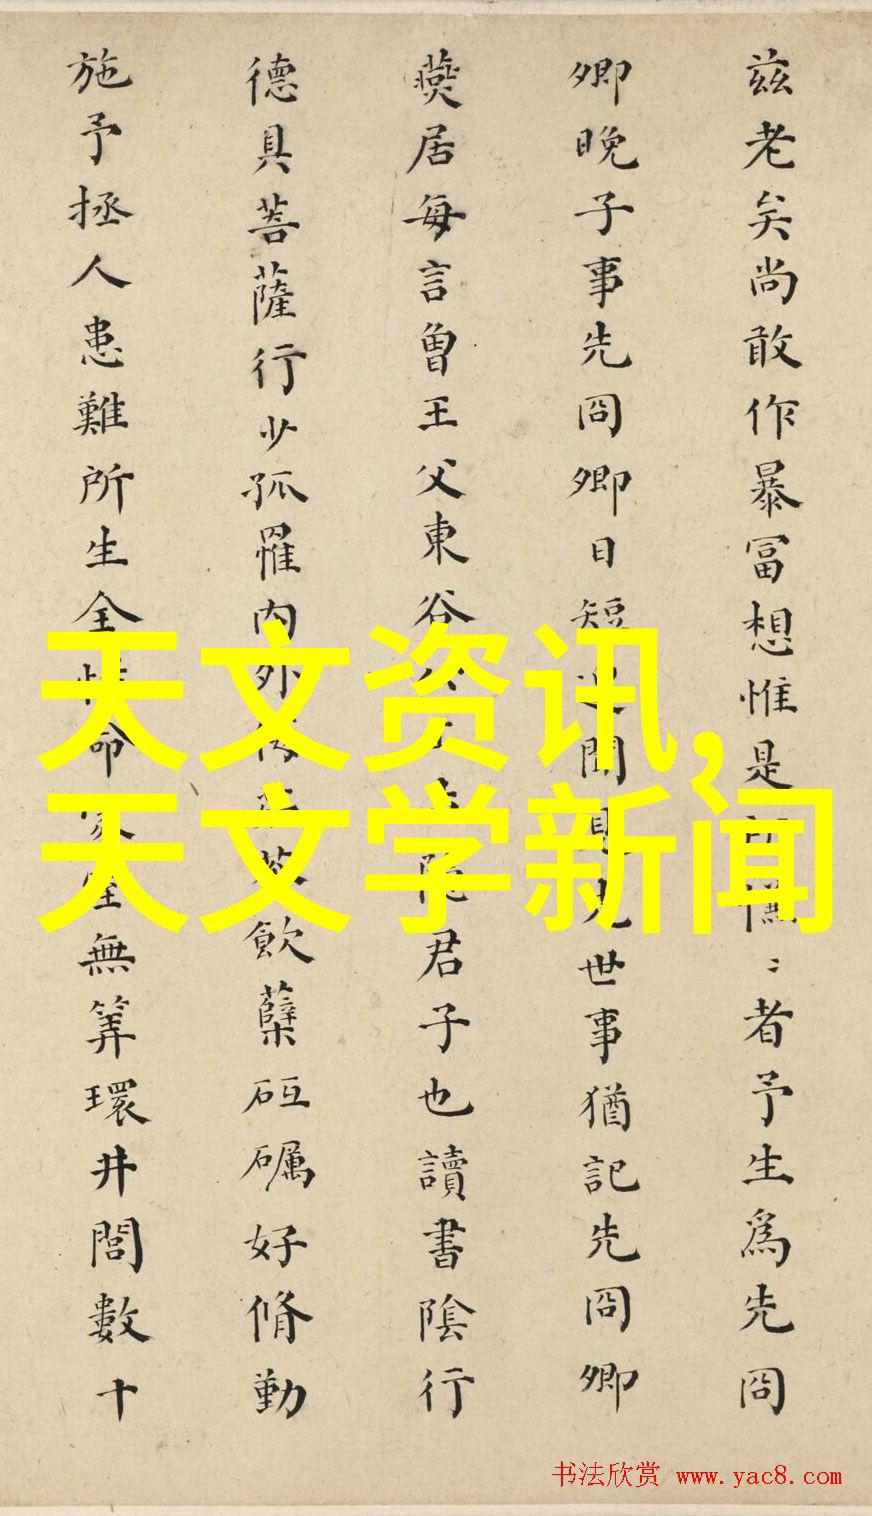 兹老矣尚敢作暴冨想惟是〻者予生爲先冏
卿晚子事先冏卿日短聞見先世事猶記先冏卿
燕居每言曾王父東谷君子也讀書陰行
德具菩薩行少孤罹内外飲蘖砥礪好脩勤
施予拯人患難所生全性命家產無筭環井閭數十
天文资讯,
天文学新闻
书法欣赏 www.yac8.com